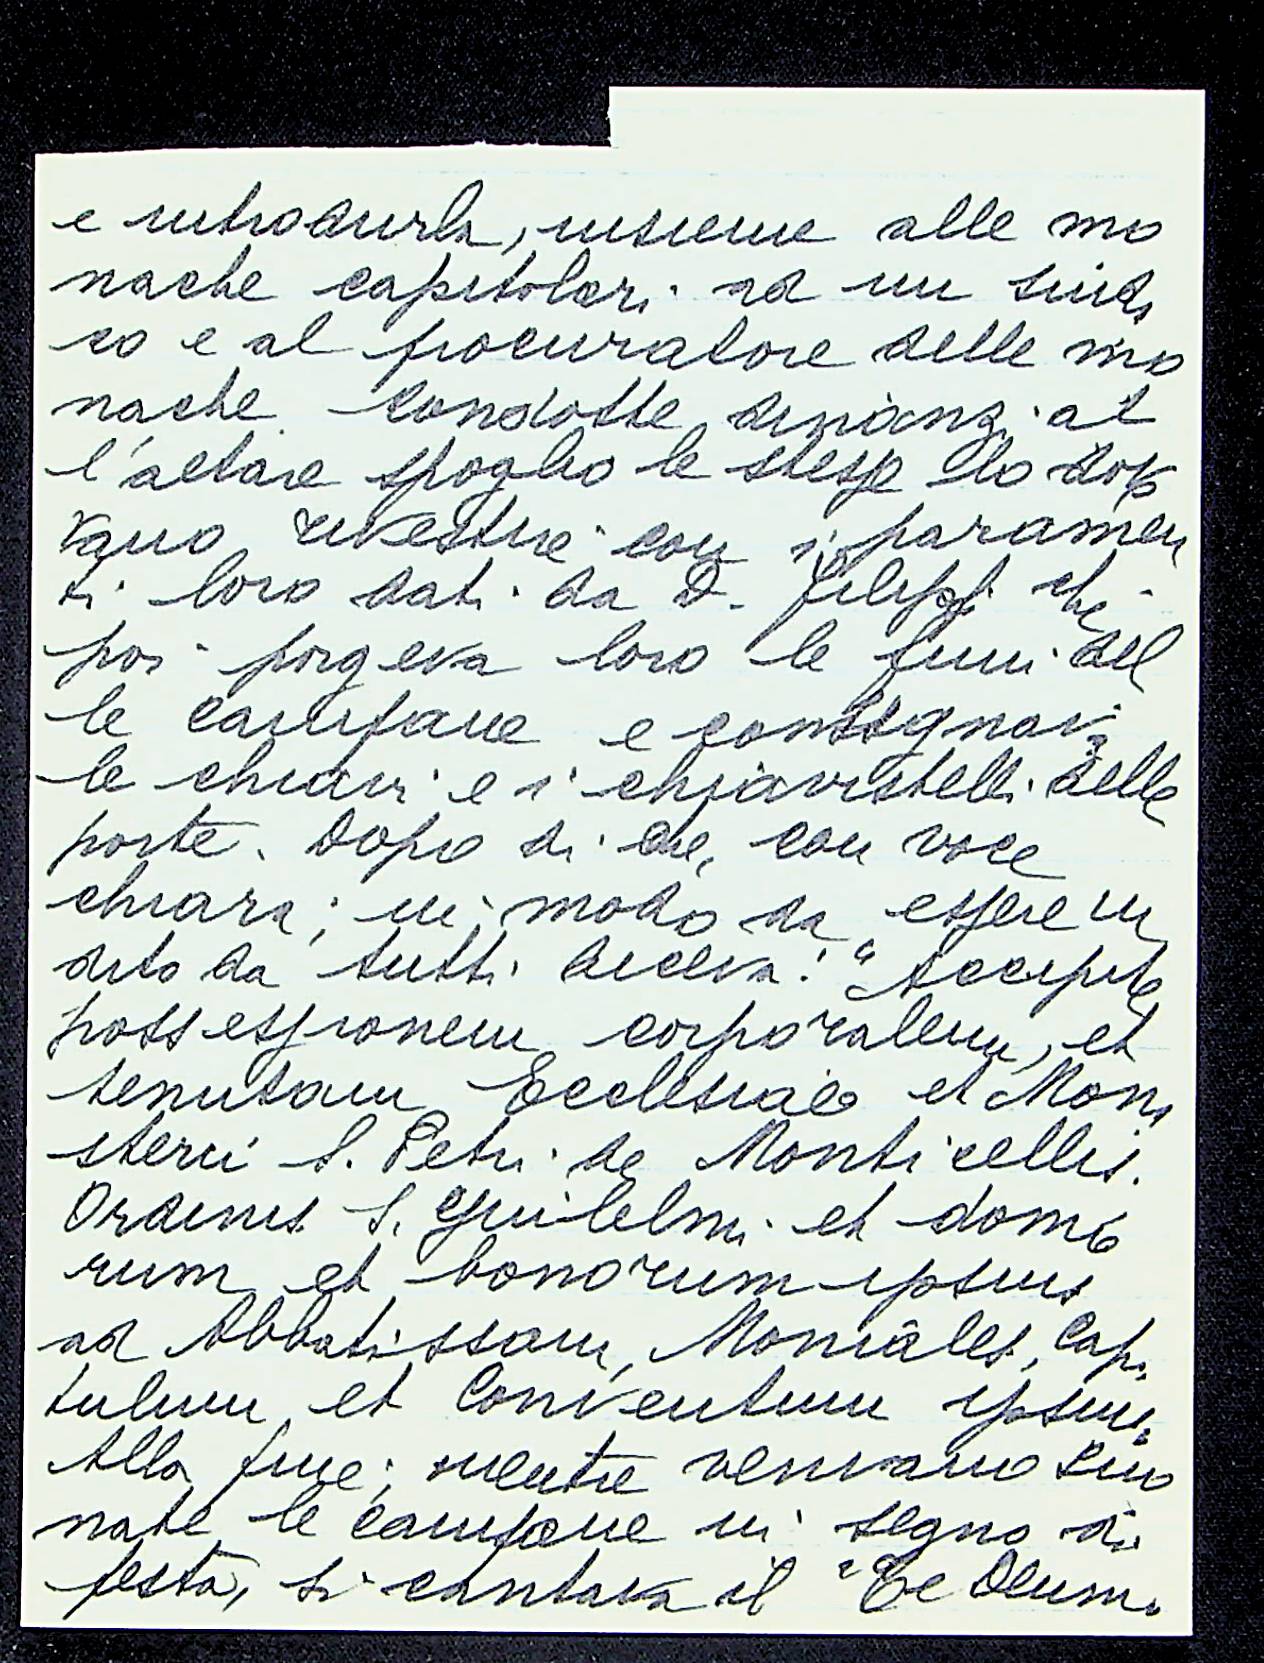 e introdurla, insieme alle mo
nache capitolari ad un sinda
co e al procuratore delle mo
nache. Condotte dinanzi al
l'altare spoglio le stesse lo dove
vano rivestire con i paramen
ti loro dati da D. Filippi che
poi porgeva loro le funi del
le campane e consegnava
le chiavi e i chiavistelli delle
porte. Dopo di che, con voce
chiara; in modo da essere u
dito da tutti diceva: "Accipite
possessionem corporalem, et
tenutam Ecclesiae et Mona
sterii S. Petri de Monticellis.
Ordinis S. Guilelmi et domo
rum et bonorum ipsius
ad Abbatissam, Moniales, Capi
tulum et Conventum ipsius.
Alla fine; mentre venivano suo
nate le campane in segno di
festa, si cantava il "Te Deum.